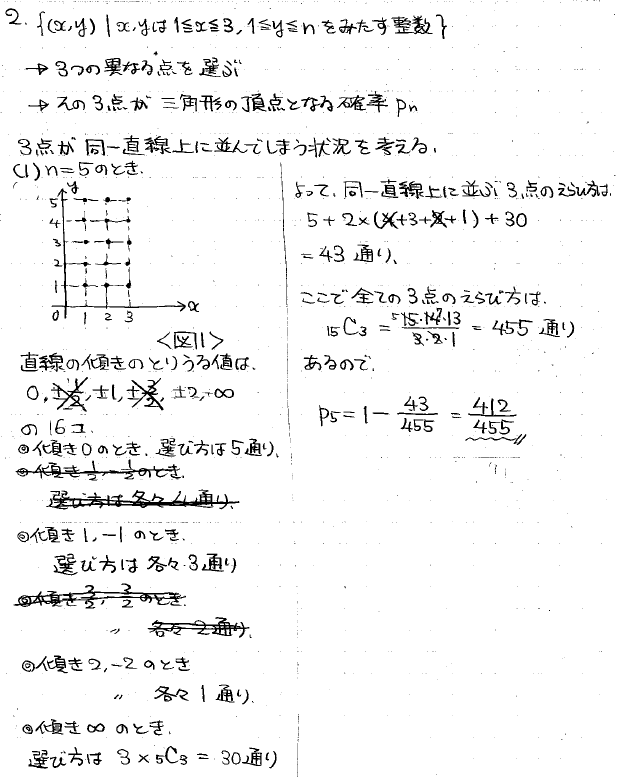 2. {(x,y) | x,yは 1≦x≦3, 1≦y≦n をみたす整数}
→ 3つの異なる点を選ぶ
→ その3点が三角形の頂点となる確率 Pn
3点が同一直線上に並んでしまう状況を考える,
(1) n=5のとき.
y
5
4
3
2
1
0 1 2 3 x
<図1>
直線の傾きのとりうる値は、
0, ±1/2, ±1, ±3/2, ±2, ∞
の 16コ.
◎傾き0のとき. 選び方は5通り,
◎傾き 1/2, -1/2のとき.
選び方は各々4通り.
◎傾き 1, -1 のとき.
選び方は 各々3通り
◎傾き 3/2, -3/2 のとき.
〃 各々2通り.
◎傾き2, -2 のとき
〃 各々 1通り.
◎傾き∞ のとき.
選び方は 3 × 5C3 = 30通り
よって, 同一直線上に並ぶ3点のえらび方は.
5 + 2×(4+3+2+1) + 30
= 43 通り、
ここで全ての3点のえらび方は.
15C3 = 15・14・13/3・2・1 = 455 通り
あるので.
P5 = 1 - 43/455 = 412/455